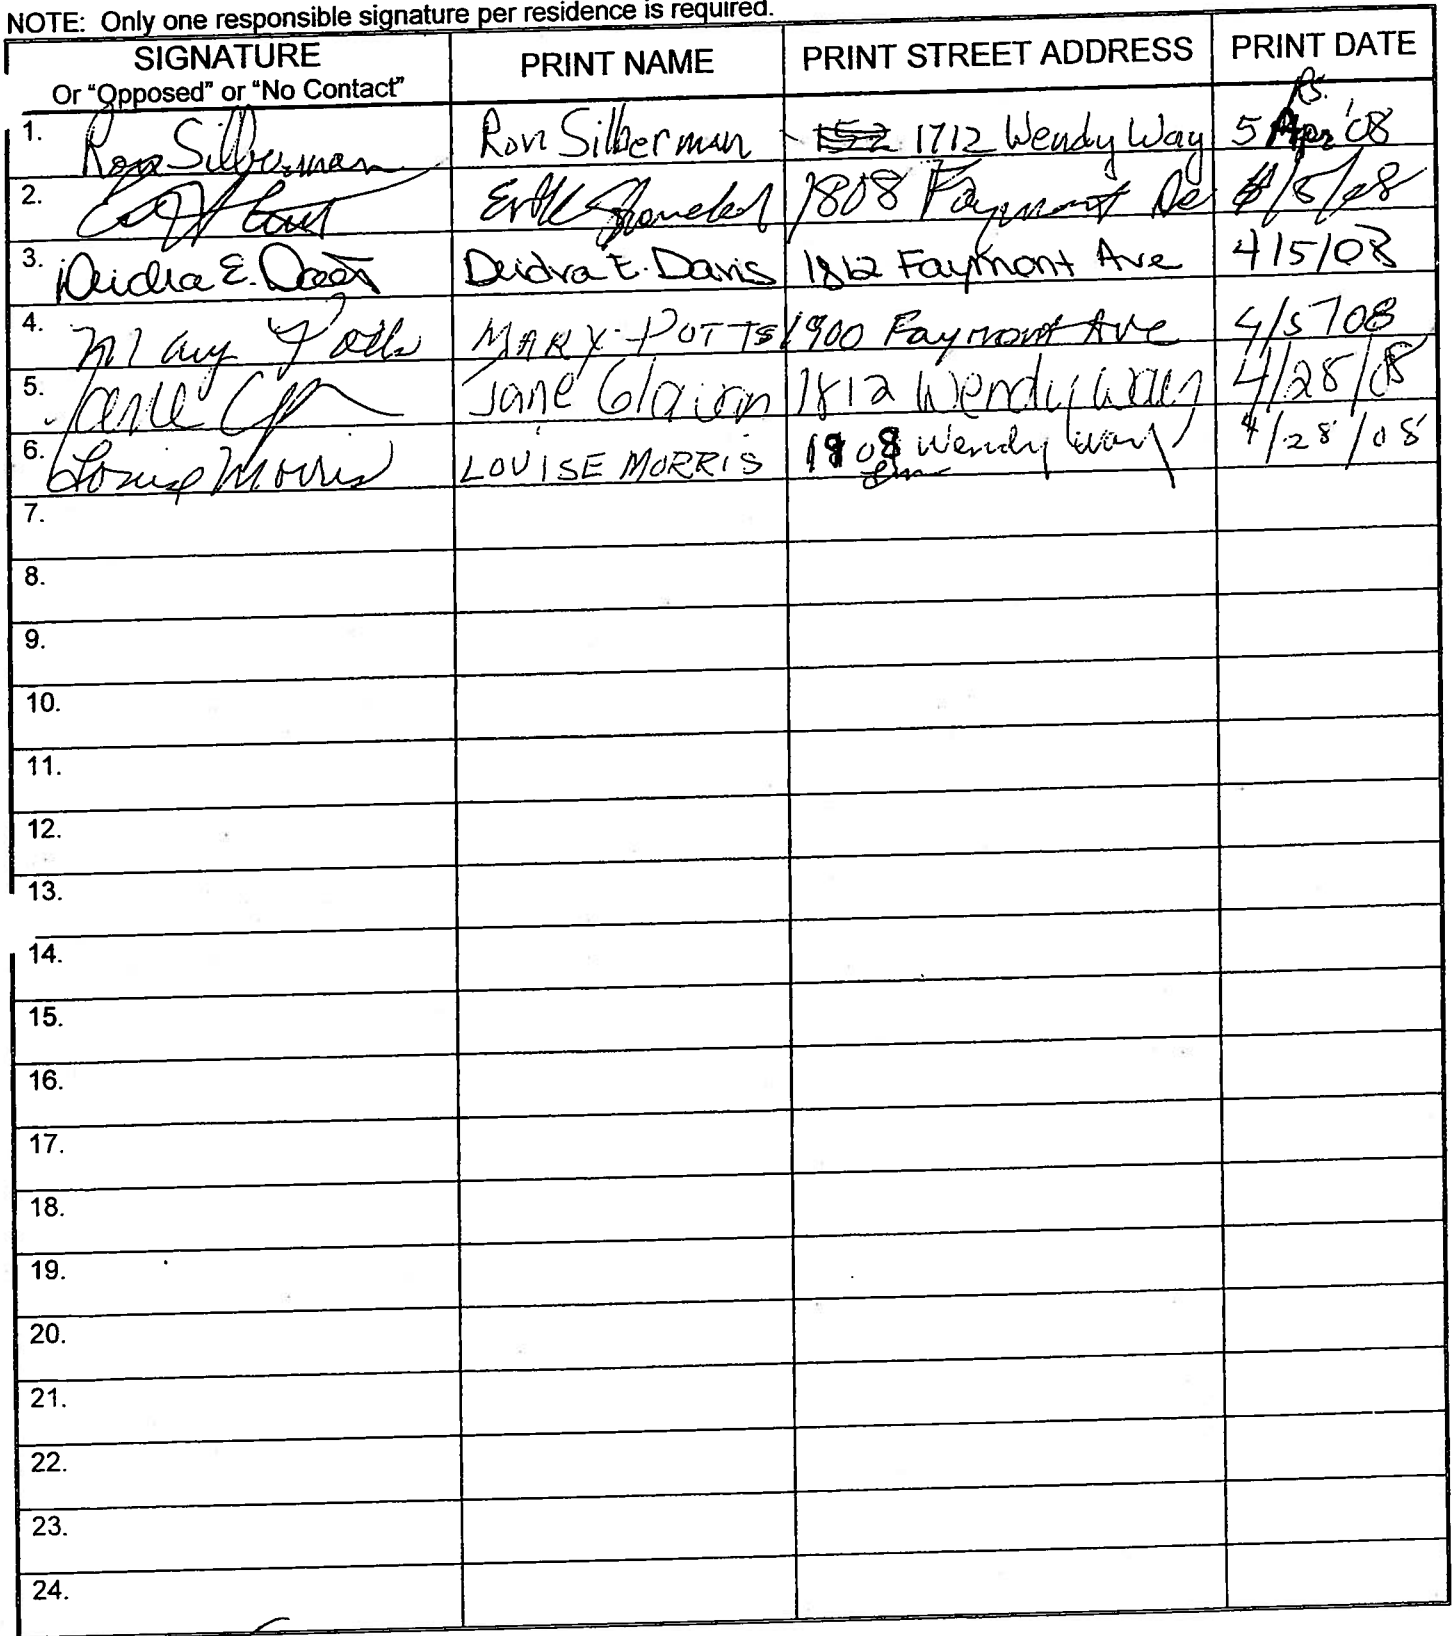 NOTE: Only one responsible signature per residence is required.
SIGNATURE PRINT NAME PRINT STREET ADDRESS PRINT DATE
Or "Opposed" or "No Contact"
RS.
1. Ron Silberman Ron Silberman 1712 Wendy Way 5 Apr '08
2. Erik 1808 Faymont 4/5/08
3. Deidra E. Davis Deidra E. Davis 1812 Faymont Ave 4/5/08
4. Mary Potts MARY POTTS 1900 Faymont Ave 4/5/08
5. Jane Jane 1812 Wendy Way 4/28/08
6. Louise Morris LOUISE MORRIS 1908 Wendy Way 4/28/08
7.
8.
9.
10.
11.
12.
13.
14.
15.
16.
17.
18.
19.
20.
21.
22.
23.
24.